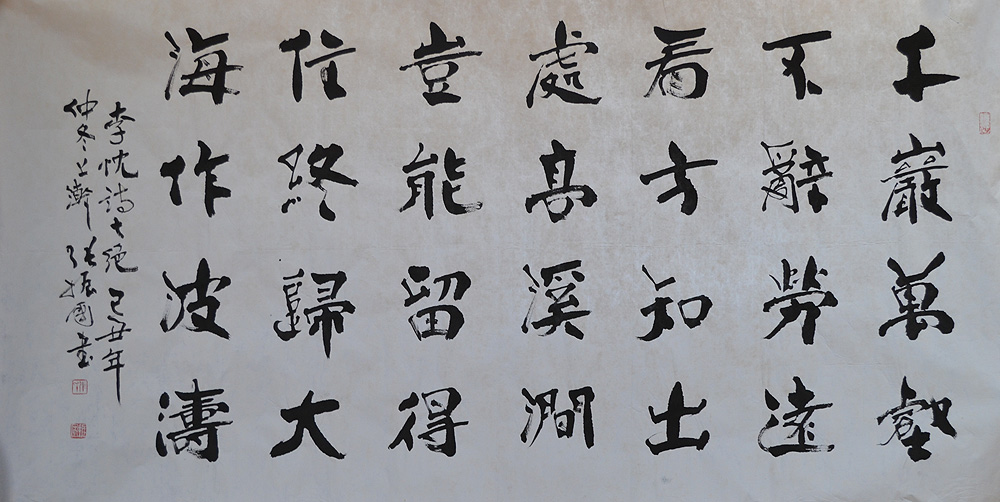 千巖萬壑
不辭勞遠
看方知出
處高溪澗
豈能留得
住終歸大
海作波濤
李忱詩七絕己丑年
仲冬上澣張振國書